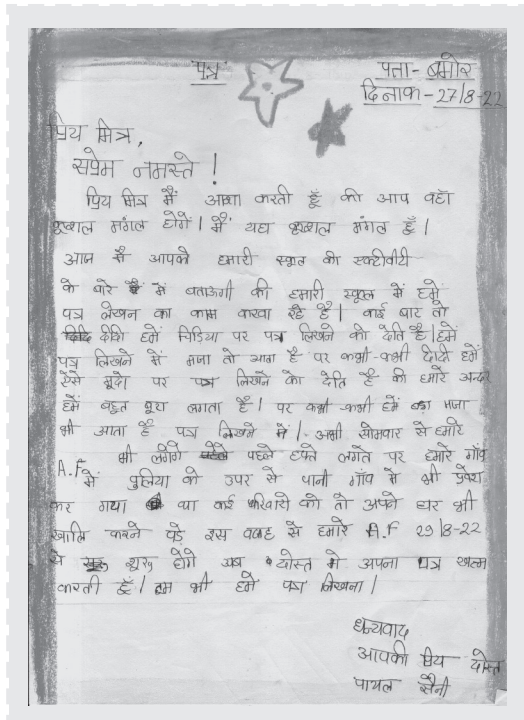 पत्र
पता- बमोर
दिनाक - 27/8-22
प्रिय मित्र,
सप्रेम नमस्ते !
प्रिय मित्र मैं आशा करती हूँ की आप वहाँ
कुशल मंगल होगें। मैं यहा कुशल मंगल हूँ।
आज मैं आपको हमारी स्कूल की एक्टीवीटी
के बारे में बताऊंगी की हमारी स्कूल में हमें
पत्र लेखन का काम करवा रहे हैं। कई बार तो
दीदि हमें विडिया पर पत्र लिखने को देति है। हमें
पत्र लिखने में मजा तो आता है पर कभी-कभी दीदी हमें
ऐसे मुदो पर पत्र लिखने को देति है की हमारे अन्दर
हमें बहुत बुरा लगता है। पर कभी-कभी हमें बड़ा मजा
भी आता है पत्र लिखने में। अभी सोमवार से हमारे
A.F भी लगेंगे पहले हफ्ते लगते पर हमारे गाँव
में पुलिया की उपर से पानी गाँव में भी प्रवेश
कर गया था कई परिवारो को तो अपने घर भी
खालि करने पड़े इस वजह से हमारे A.F 29/8-22
से शुरु होगे अब दोस्त मे अपना पत्र खत्म
करती हूँ। तुम भी हमे पत्र लिखना।
धन्यवाद
आपकी प्रिय दोस्त
पायल सैनी